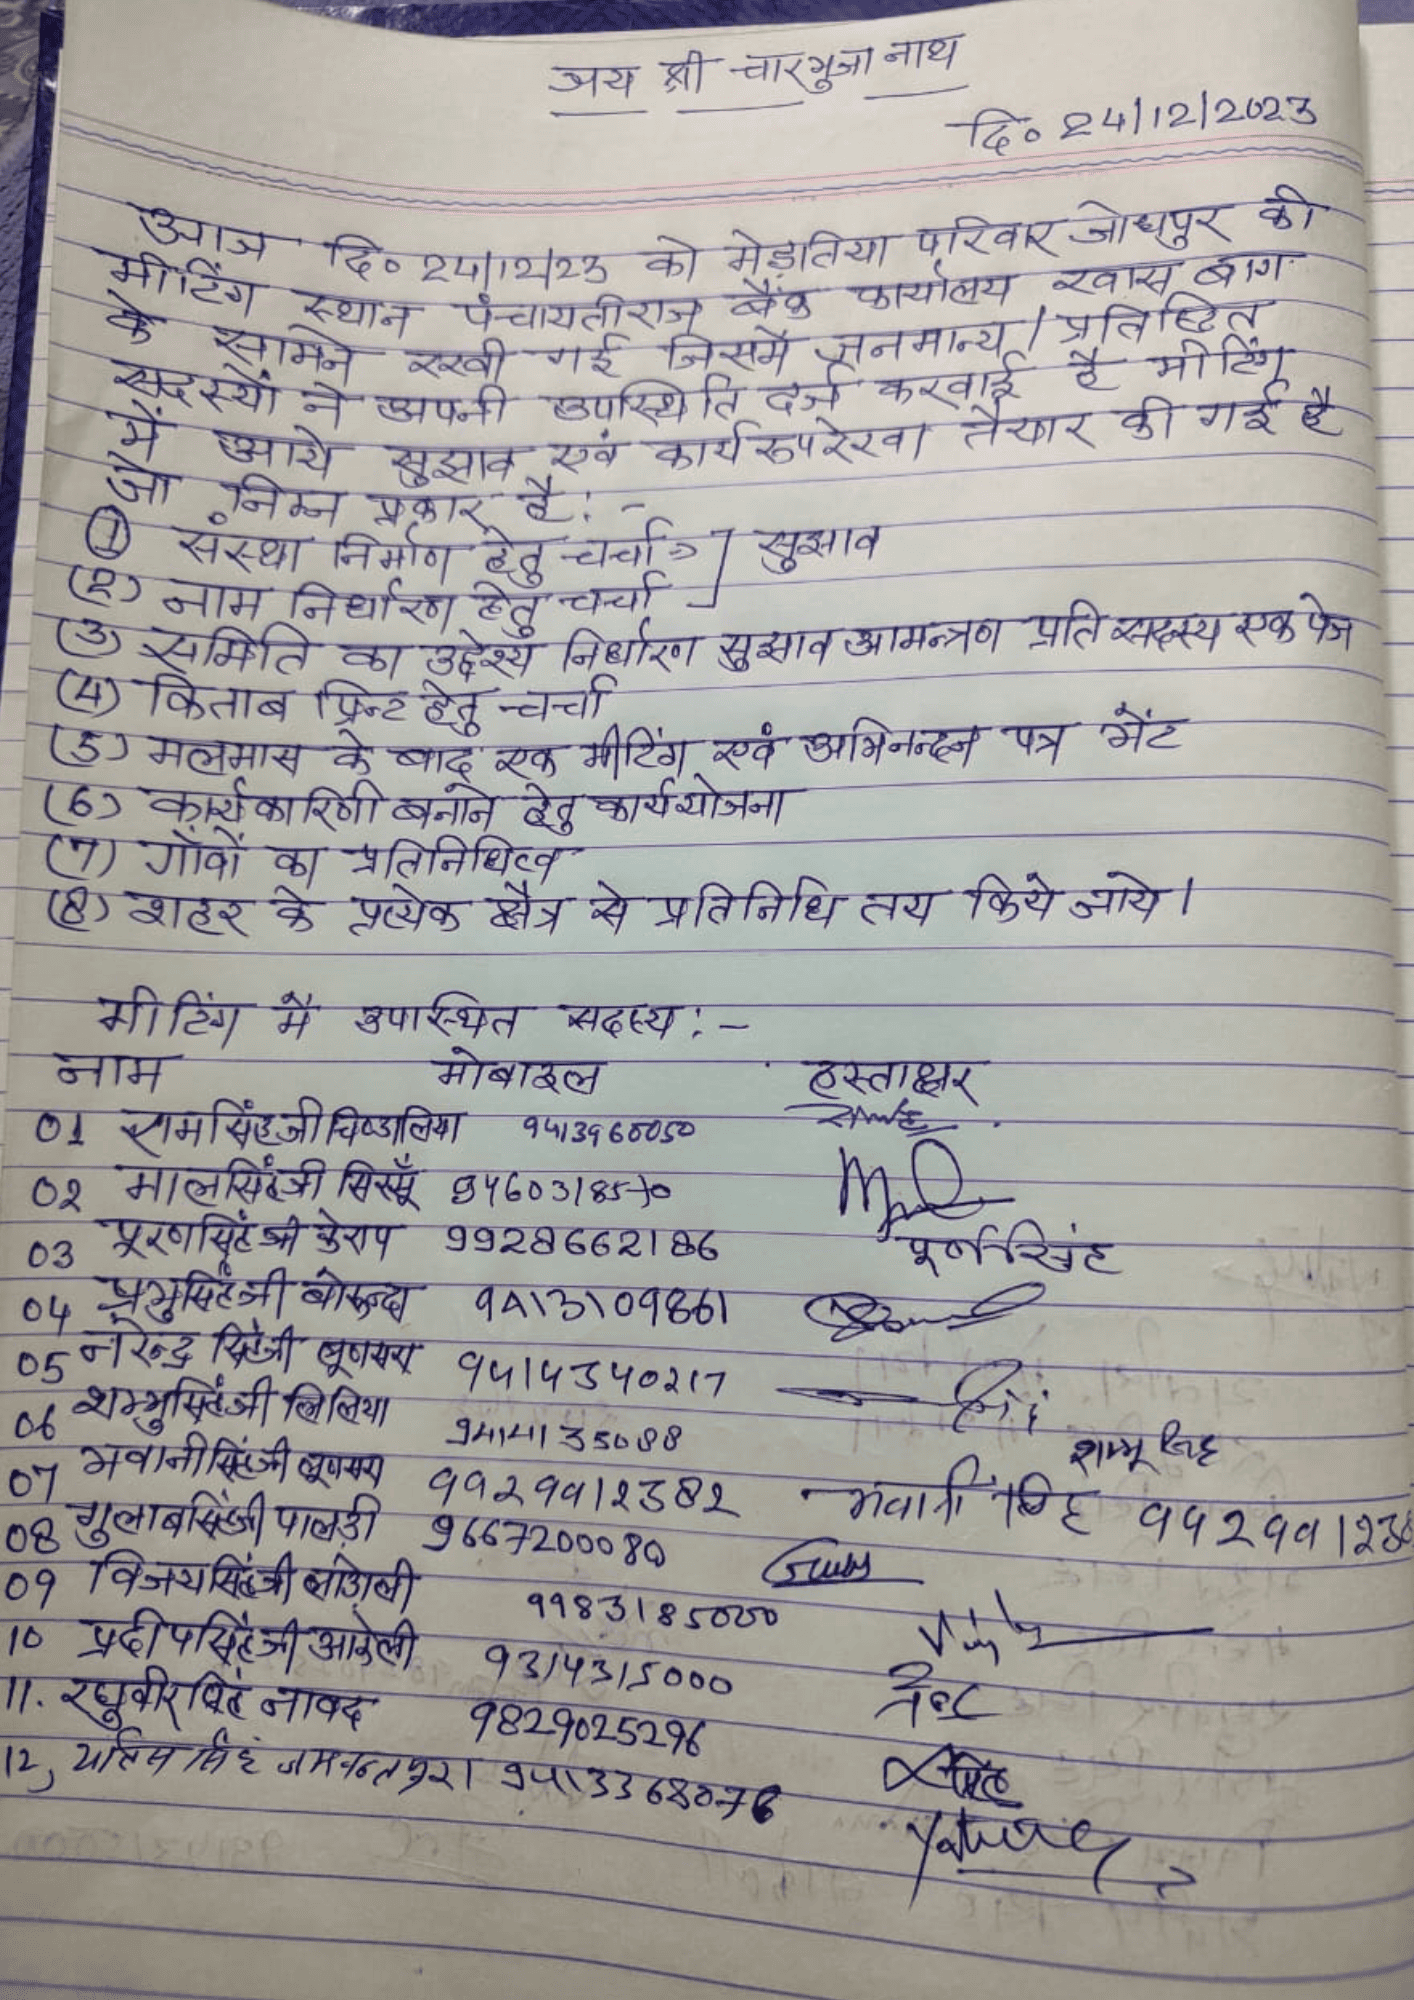 जय श्री चारभुजा नाथ
दि० 24/12/2023
आज दि० 24/12/23 को मेड़तिया परिवार जोधपुर की
मीटिंग स्थान पंचायतीराज बैंक कार्यालय खास बाग
के सामने रखी गई जिसमें जनमान्य / प्रतिष्ठित
सदस्यों ने अपनी उपस्थिति दर्ज करवाई है मीटिंग
में आये सुझाव एवं कार्य रूपरेखा तैयार की गई है
जो निम्न प्रकार है:-
① संस्था निर्माण हेतु चर्चा ] सुझाव
(2) नाम निर्धारण हेतु चर्चा
(3) समिति का उद्देश्य निर्धारण सुझाव आमन्त्रण प्रति सदस्य एक पेज
(4) किताब प्रिन्ट हेतु चर्चा
(5) मलमास के बाद एक मीटिंग एवं अभिनन्दन पत्र भेंट
(6) कार्यकारिणी बनाने हेतु कार्ययोजना
(7) गाँवों का प्रतिनिधित्व
(8) शहर के प्रत्येक क्षैत्र से प्रतिनिधि तय किये जाये।
मीटिंग में उपास्थित सदस्य:-
नाम मोबाइल हस्ताक्षर
01 रामसिंहजी चिण्डालिया 9413960050
02 मालसिंहजी सिरसूँ 9460318570
03 पूरणसिंहजी केराप 9928662186 पूर्णसिंह
04 प्रभुसिंहजी बोरून्दा 9413109861
05 नरेन्द्र सिंहजी लूणसरा 9414340217
06 शम्भुसिंहजी लिलिया 9414135088 शम्भू सिंह
07 भवानीसिंहजी लूणसरा 9929912382 भवानी सिंह 992991238
08 गुलाबसिंहजी पालड़ी 9667200080
09 विजयसिंहजी 9983185000
10 प्रदीपसिंहजी आकेली 9314315000
11. रघुवीरसिंह नावद 9829025296
12, यतिन सिंह जसवन्तपुरा 9413368076